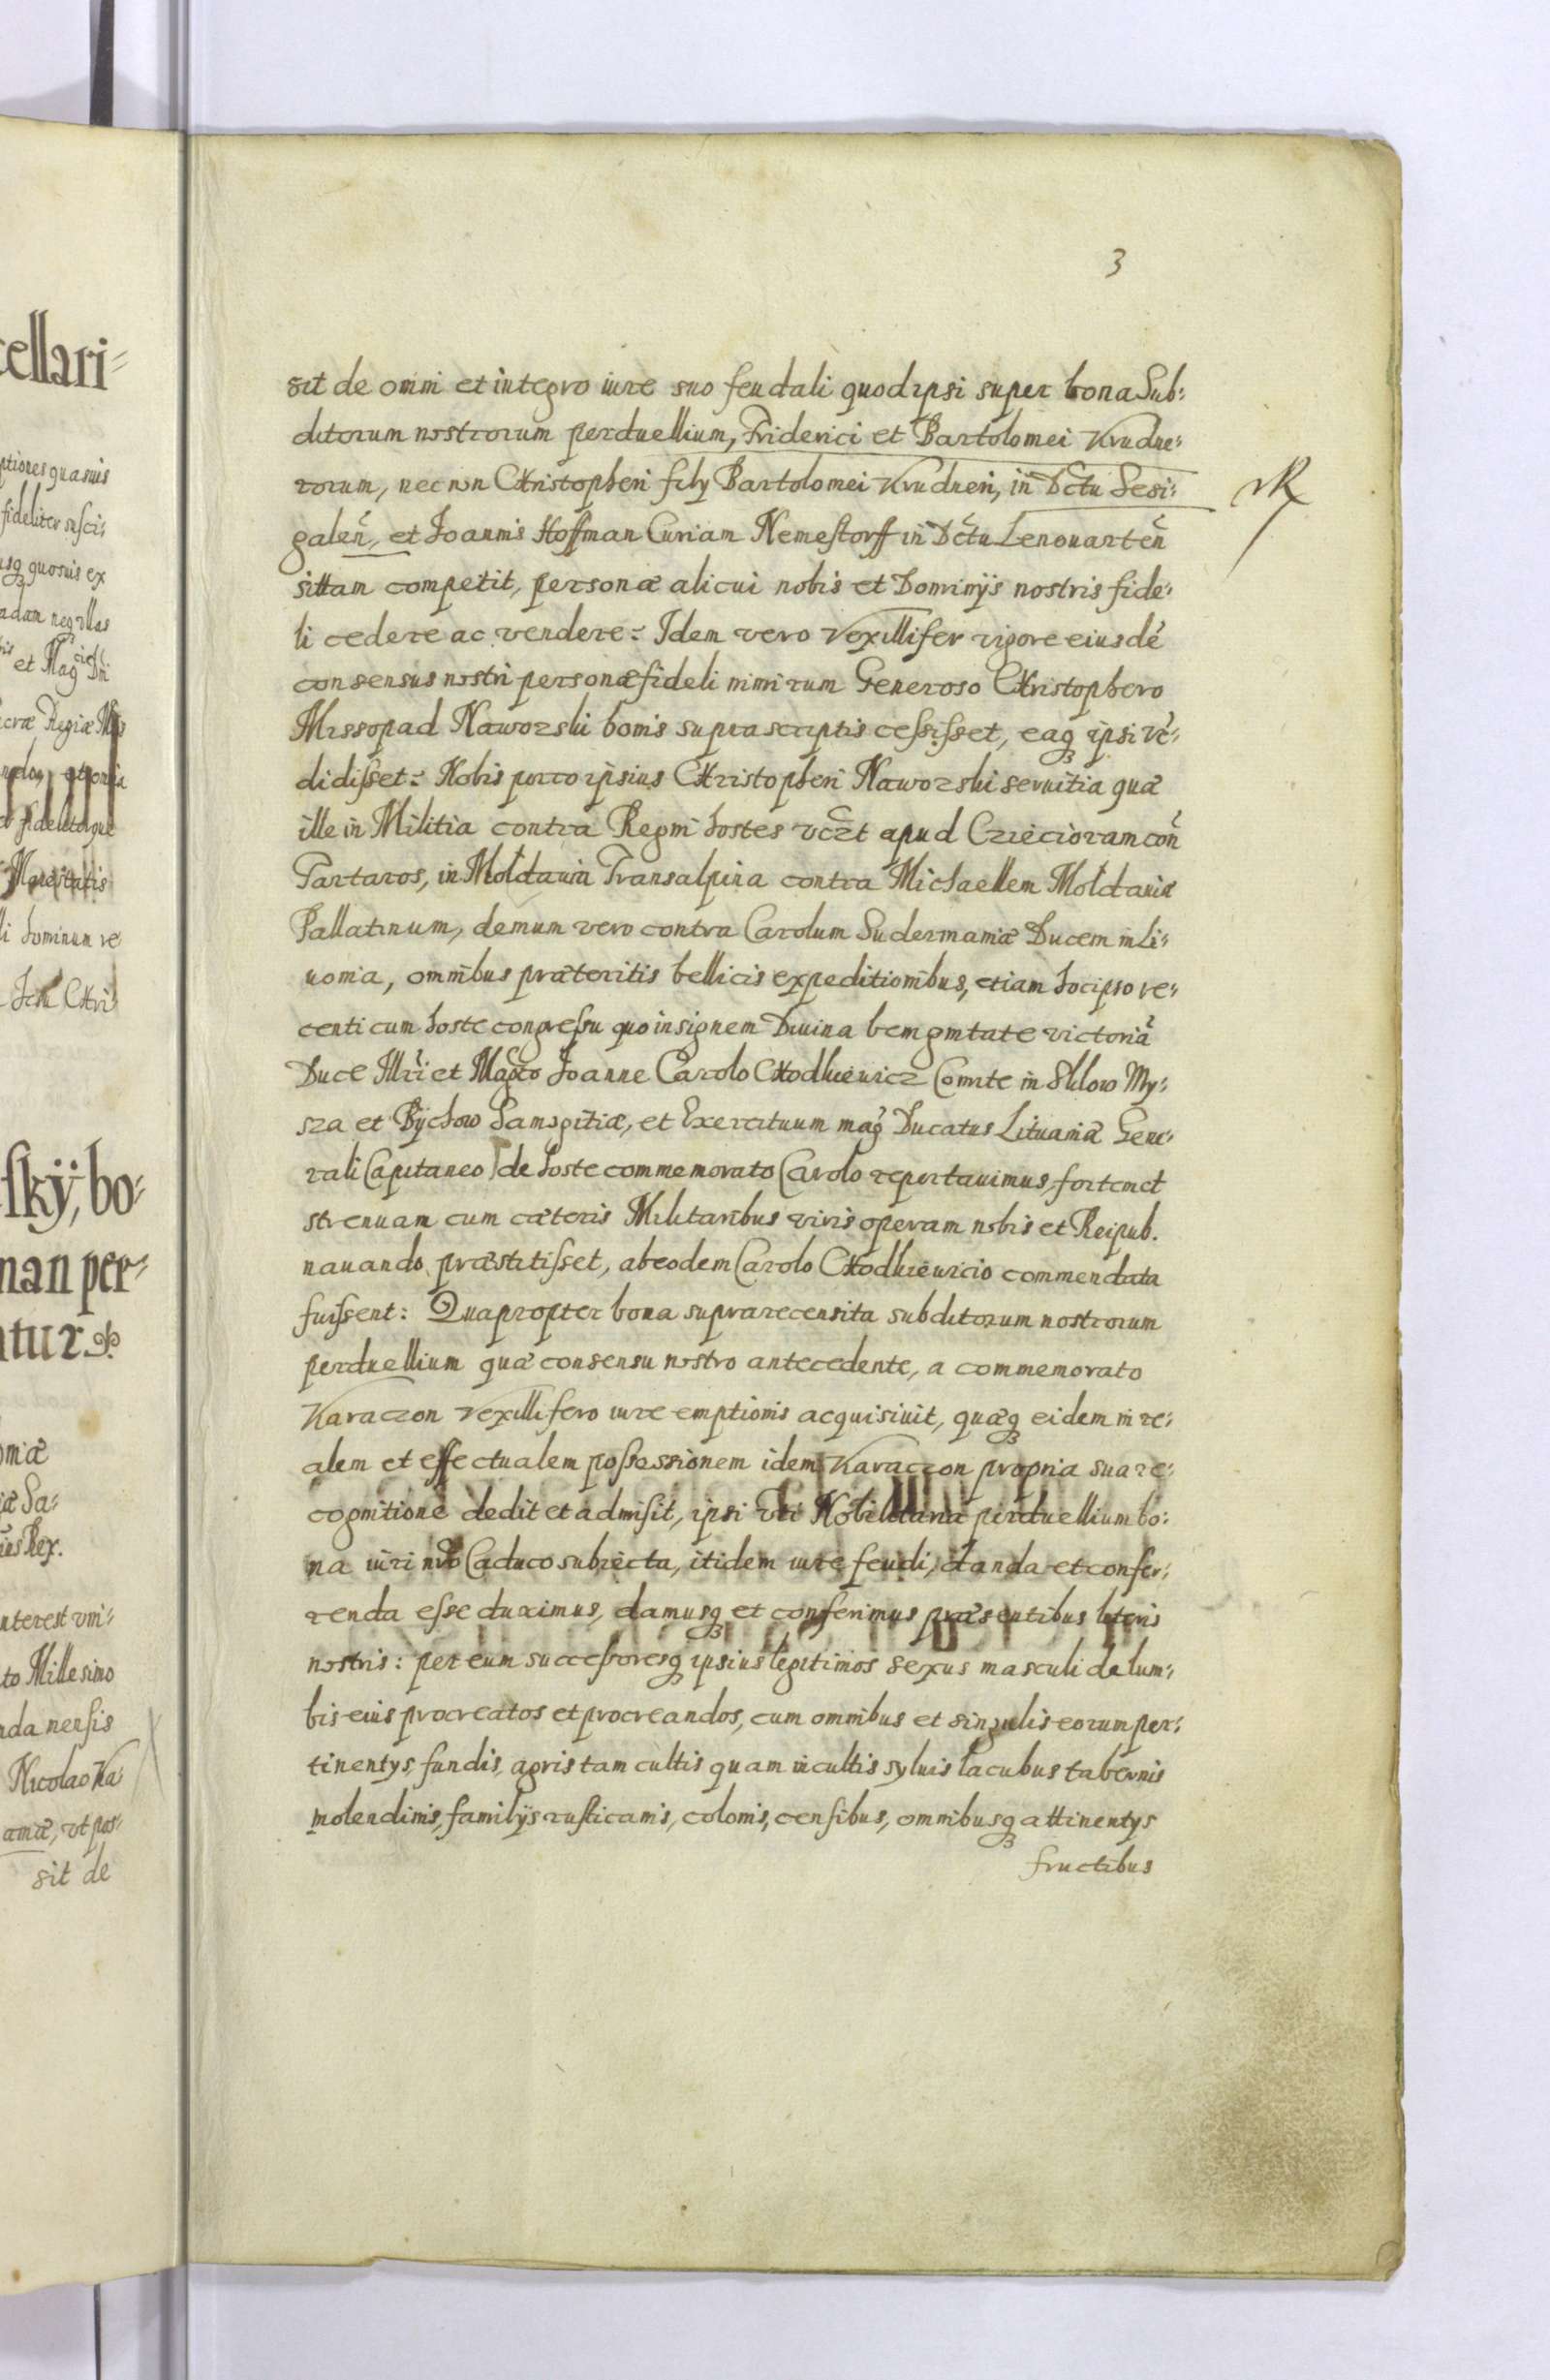 3
sit de omni et integro iure suo feudali quod ipsi super bona Sub:
ditorum nostrorum perduellium, Friderici et Bartolomei Krudne:
rorum, nec non Christopheri fily Bartolomei Krudneri, in Dctu Sesi:
galeñ, et Joannis Hoffman Curiam Nemestorff in Dctu Lenouarteñ
sittam competit, personæ alicui nobis et Dominijs nostris fide:
li cedere ac vendere: Idem vero Vexillifer vigore eiusdē
consensus nostri personæ fideli nimirum Generoso Christophero
Missopad Naworski bonis suprascriptis cessisset, eaq ipsi vē:
didisset: Nobis porro ipsius Christopheri Naworski seruitia quæ
ille in Militia contra Regni hostes vczt apud Czieczioram con
Tartaros, in Moldauia Transalpina contra Michaellem Moldauiæ
Pallatinum, demum vero contra Carolum Sudermaniæ Ducem in Li:
uonia, omnibus præteritis bellicis expeditionibus, etiam hocipso re:
centi cum hoste congressu quo insignem Diuina benignitate victoriā
Duce Illri et Magco Joanne Carolo Chodkiewicz Comite in Sklow My:
sza et Bychow Samogitiæ, et Exercituum mag Ducatus Lituaniæ Gene:
rali Capitaneo de hoste commemorato Carolo reportauimus, fortem et
strenuam cum cæteris Militaribus viris operam nobis et Reipub.
nauando præstitisset, ab eodem Carolo Chodkiewicio commendata
fuissent: Quapropter bona suprarecensita subditorum nostrorum
perduellium quæ consensu nostro antecedente, a commemorato
Karaczon Vexillifero iure emptionis acquisiuit, quæq eidem in re:
alem et effectualem possessionem idem Karaczon propria sua re:
cognitione dedit et admisit, ipsi vti perduellium bo:
na iuri nro Caduco subiecta, itidem iure feudi, danda et confer:
renda esse duximus, damusq et conferimus præsentibus literis
nostris: per eum successoresq ipsius legitimos sexus masculi de lum:
bis eius procreatos et procreandos, cum omnibus et singulis eorum per:
tinentys, fundis, agris tam cultis quam incultis syluis lacubus tabernis
molendinis, familijs rusticanis, colonis, censibus, omnibusq attinentys
fructibus
cellari:
ptiones quasuis
fideliter susci:
usq quosuis ex
et Mag Dni
Sacræ Regiæ
Maiestatis
Christi
sky, bo:
man per:
tur
oniæ
iæ Sa:
Rex.
nterest vni:
to Millesimo
nda nensis
Nicolao Ka:
amæ, vt pos:
sit de